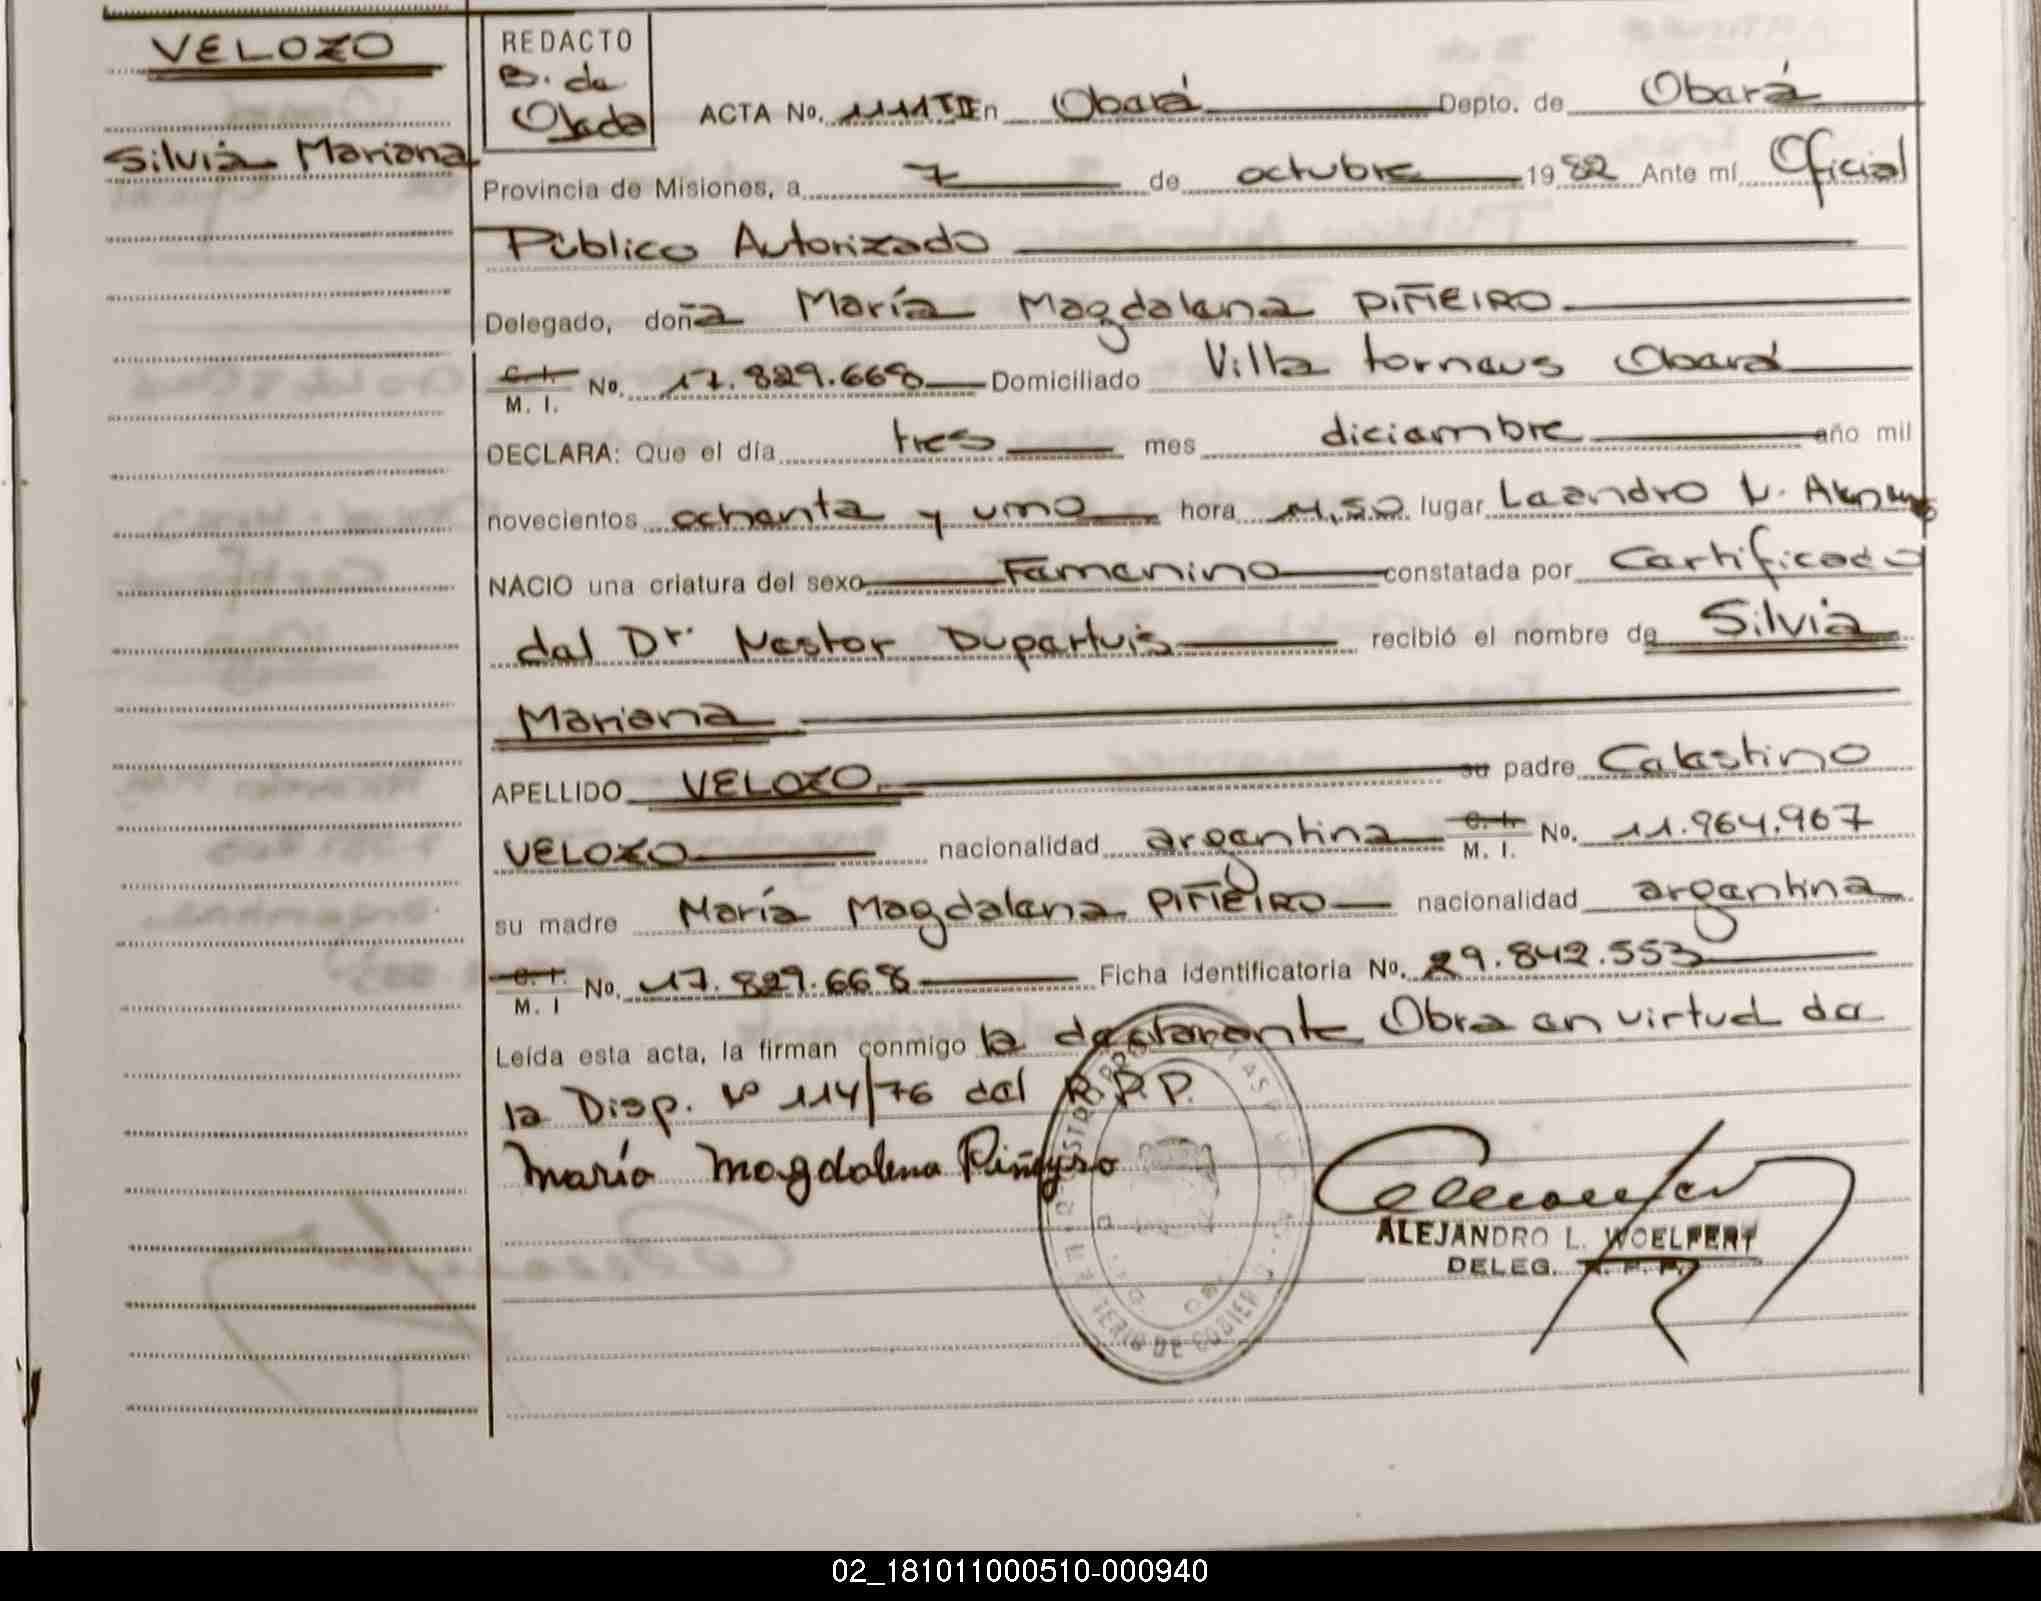 VELOZO
Silvia Mariana
REDACTO
B. de
Ojeda
ACTA No. 1111TII En Oberá Depto. de Oberá
Provincia de Misiones, a 7 de octubre 1982 Ante mí Oficial
Público Autorizado
Delegado, doña María Magdalena PIÑEIRO
C. I.
M. I. No. 17.829.668 Domiciliado Villa torneus Oberá
DECLARA: Que el día tres mes diciembre año mil
novecientos ochenta y uno hora 11,50 lugar Leandro N. Alem
NACIO una criatura del sexo Femenino constatada por Certificado
del Dr. Nestor Dupertuis recibió el nombre de Silvia
Mariana
APELLIDO VELOZO su padre Celestino
VELOZO nacionalidad argentina C. I. M. I. No. 11.964.967
su madre María Magdalena PIÑEIRO nacionalidad argentina
C. I.
M. I No. 17.829.668 Ficha identificatoria No. 29.842.553
Leída esta acta, la firman conmigo la declarante Obra en virtud de
la Disp. Nº 114/76 del R.P.P.
María Magdalena Piñeyro
ALEJANDRO L. WOELFERT
DELEG. R. P. P.
02_181011000510-000940